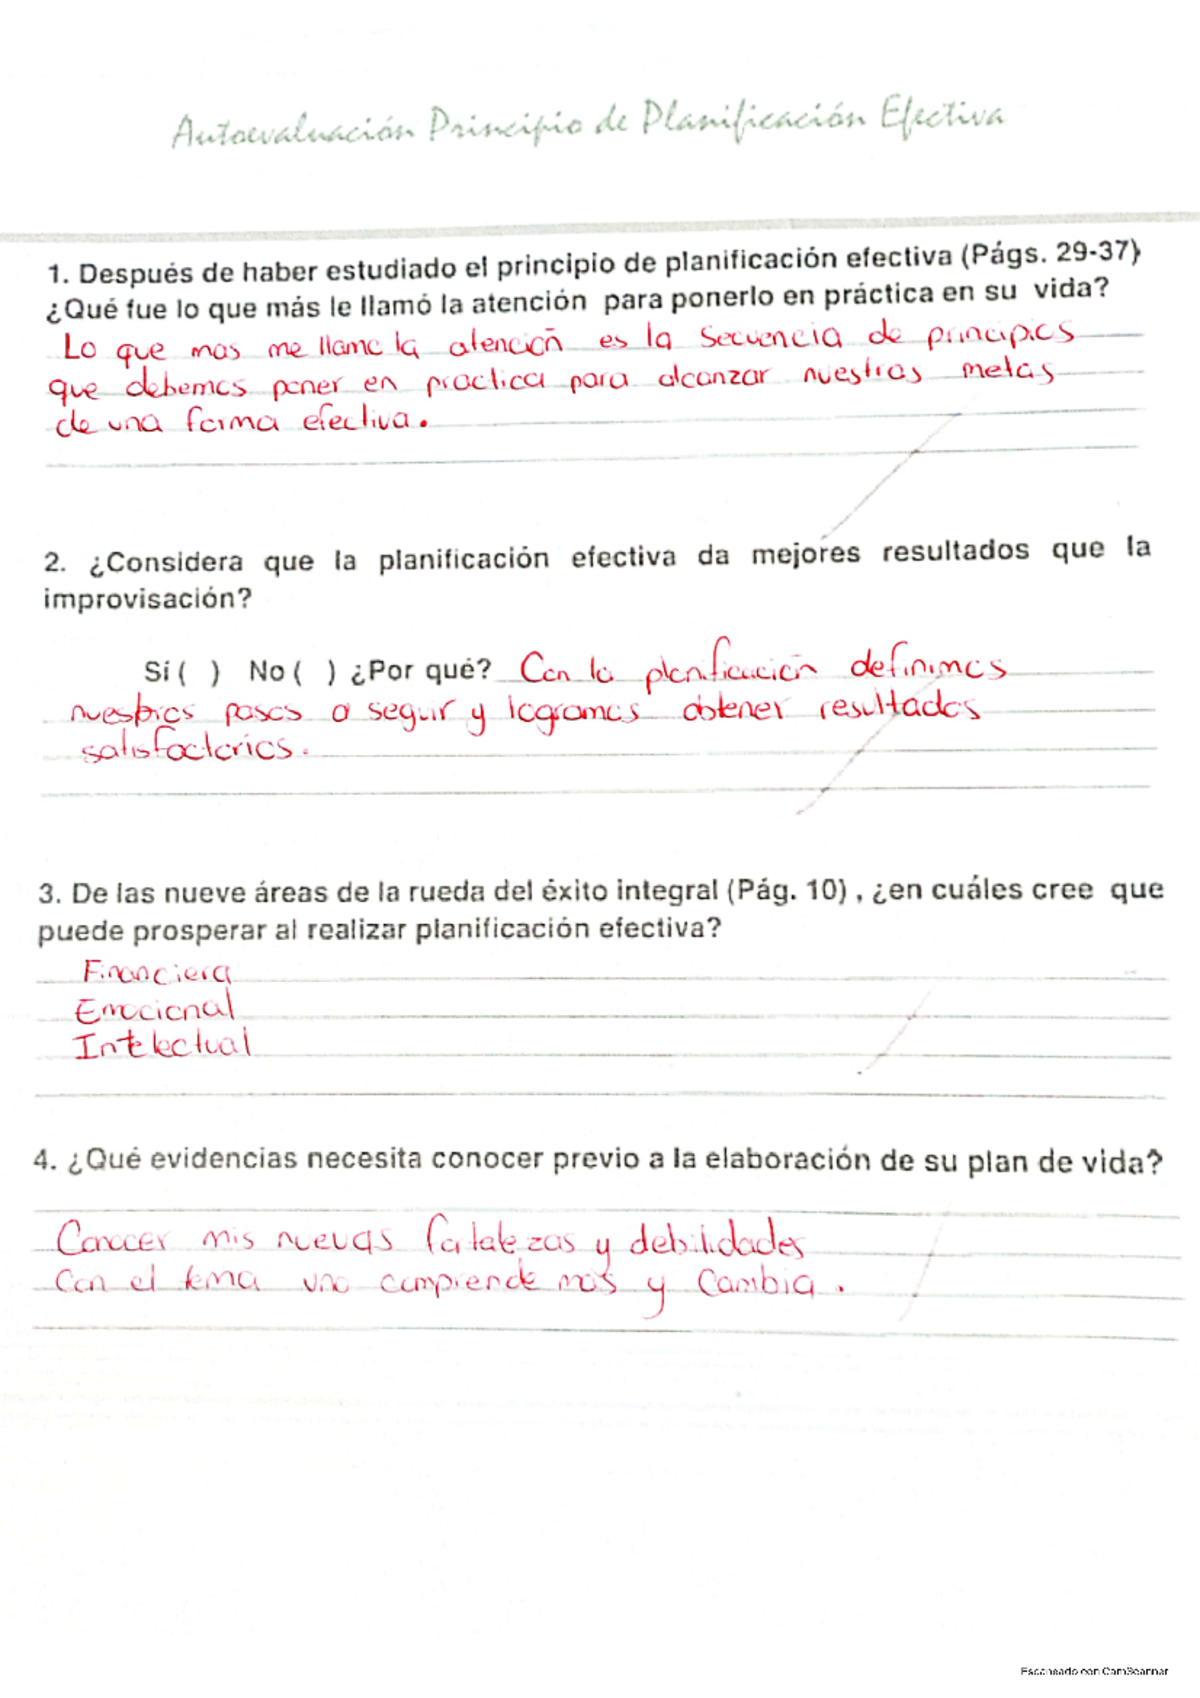 Autoevaluación Principio de Planificación Efectiva
1. Después de haber estudiado el principio de planificación efectiva (Págs. 29-37)
¿Qué fue lo que más le llamó la atención para ponerlo en práctica en su vida?
Lo que mas me llamo la atención es la secuencia de principios
que debemos poner en practica para alcanzar nuestras metas
de una forma efectiva.
2. ¿Considera que la planificación efectiva da mejores resultados que la
improvisación?
Sí ( ) No ( ) ¿Por qué? Con la planificación definimos
nuestros pasos a seguir y logramos obtener resultados
satisfactorios.
3. De las nueve áreas de la rueda del éxito integral (Pág. 10) , ¿en cuáles cree que
puede prosperar al realizar planificación efectiva?
Financiera
Emocional
Intelectual
4. ¿Qué evidencias necesita conocer previo a la elaboración de su plan de vida?
Conocer mis nuevas fortalezas y debilidades
con el tema uno comprende mas y cambia.
Escaneado con CamScanner